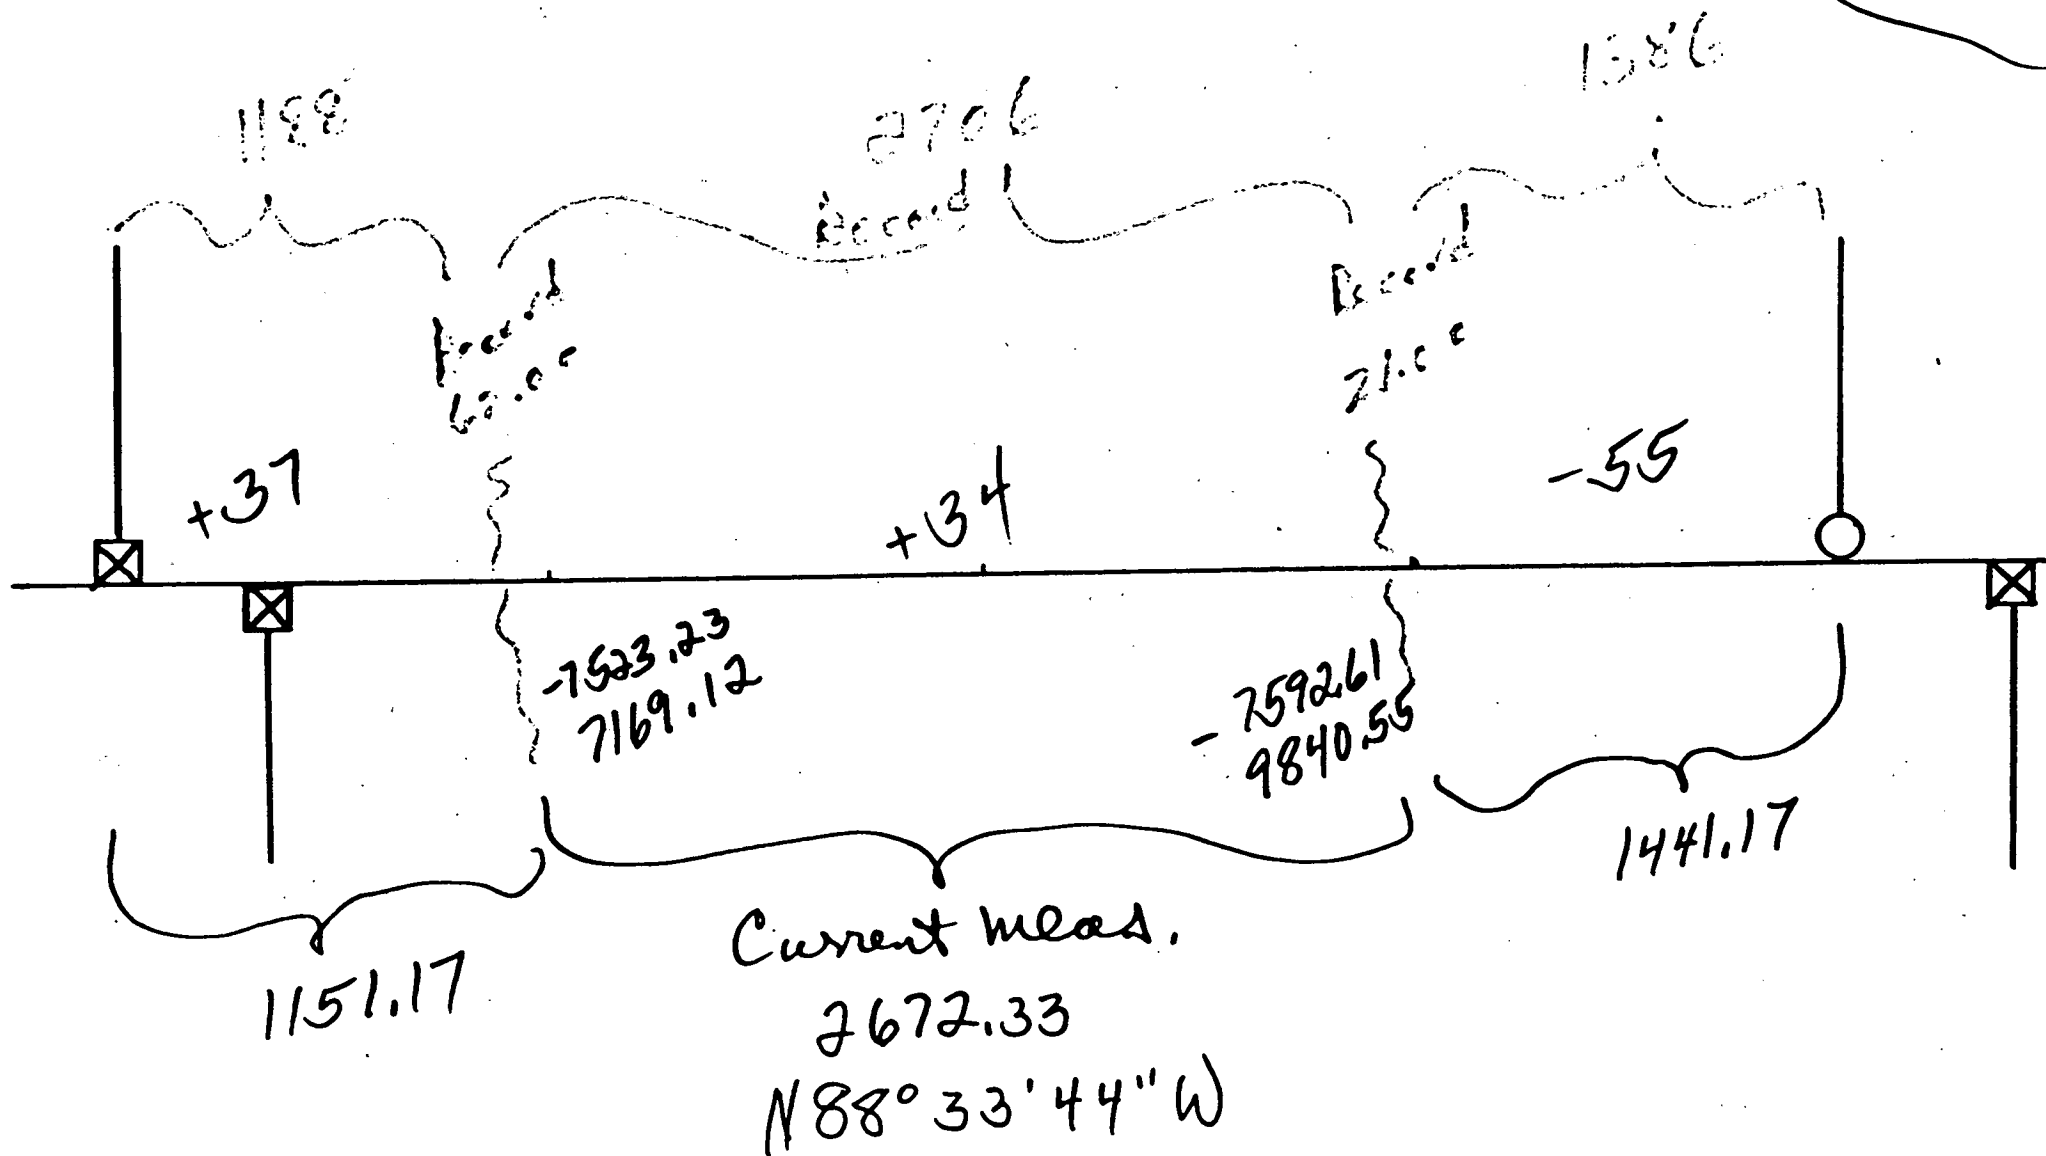 1188
2706
1386
Record
Record
Record
21.00
+37
+34
-55
-7523.23
7169.12
-7592.61
9840.55
1151.17
Current Meas.
2672.33
N88°33'44"W
1441.17